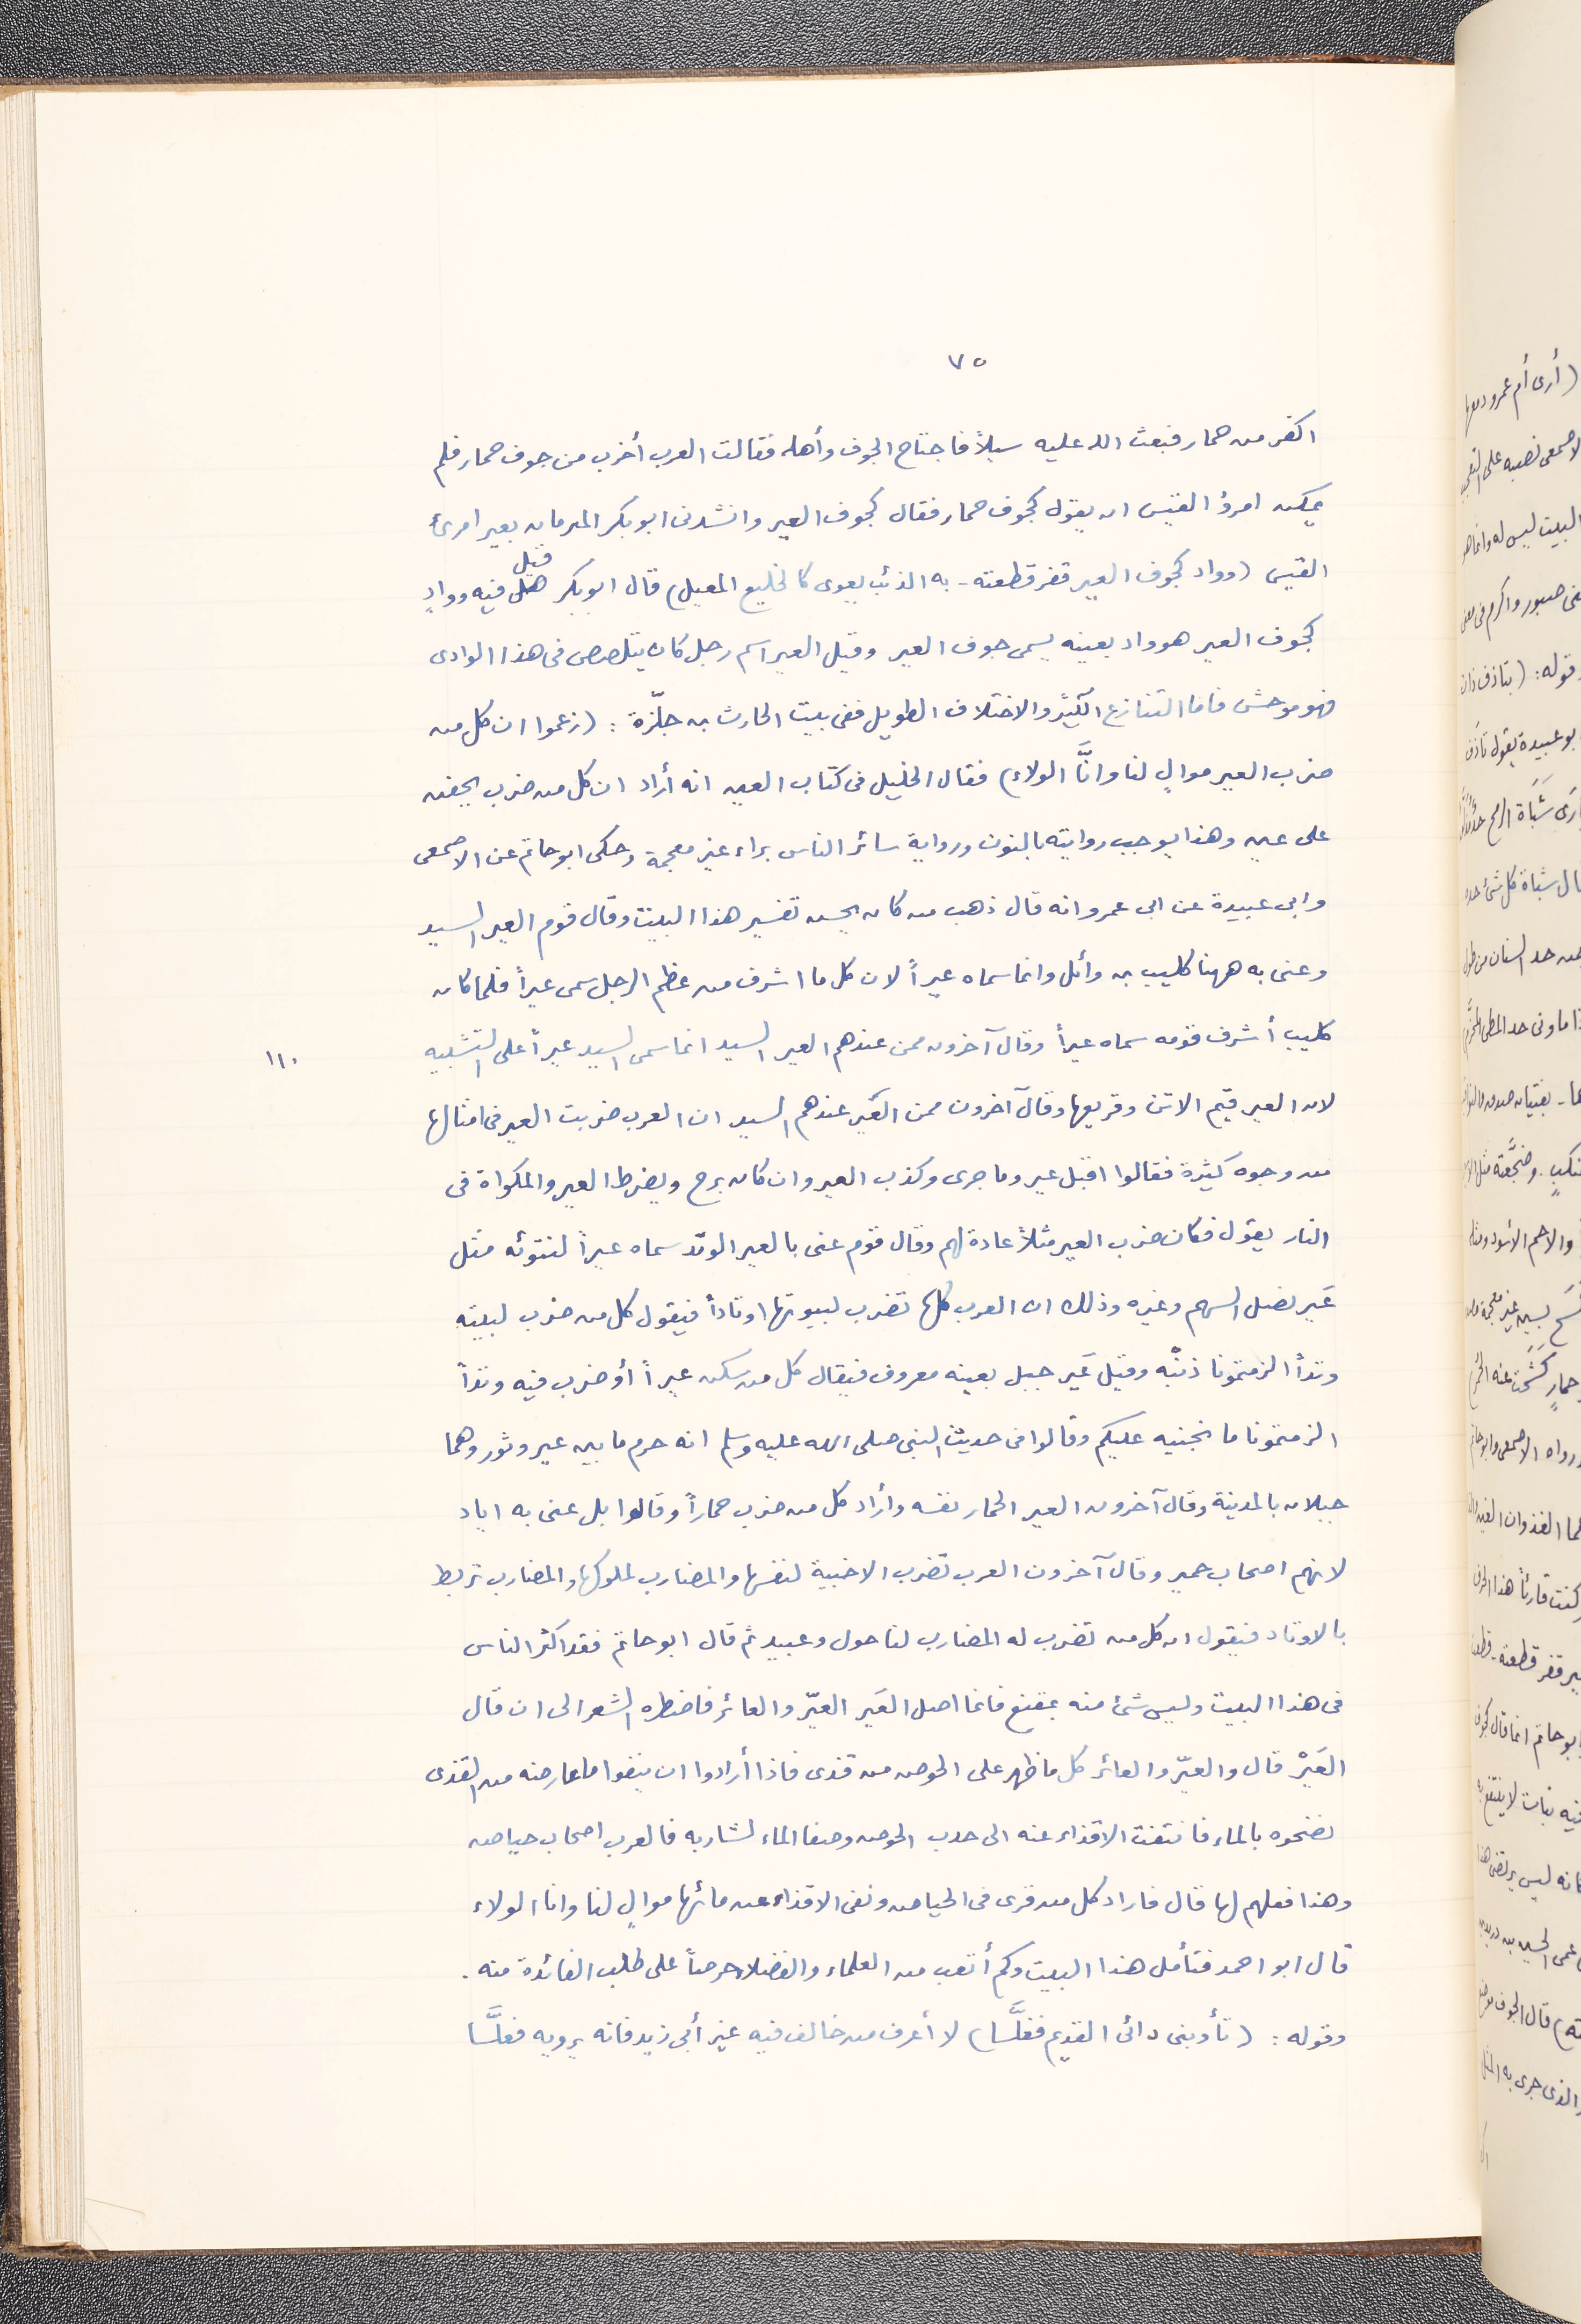 ٧٥
اكفر من حمار فبعث الله عليه سيلاً فاجتاح الجوف وأهله فقالت العرب أخرب من جوف حمار فلم
يمكنه امرؤ القيس ان يقول كجوف حمار فقال كجوف العير وانشدنى ابو بكر المبرمان بعير امرئ
القيس (وواد كجوف العير قفر قطعته - به الذئب يعوى كالخليع المعيل) قال ابو بكر قيل فيه ووادٍ
كجوف العير هو واد بعينه يسمى جوف العير وقيل العير اسم رجل كان يتلصص فى هذا الوادى
فهو موحش فاما التنازع الكثير والاختلاف الطويل ففى بيت الحارث بن حلّزة : (زعموا ان كل من
ضرب العير موالٍ لنا وانَّا الولاء) فقال الخليل فى كتاب العين انه أراد ان كل من ضرب بجفن
على عين وهذا يوجب روايته بالنون ورواية سائر الناس براء غير معجمة وحكى ابو حاتم عن الاصمعى
وابى عبيدة عن ابى عمرو انه قال ذهب من كان يحسن تفسير هذا البيت وقال قوم العير السيد
وعنى به ههنا كليب بن وائل وانما سماه عيراً لان كل ما اشرف من عظم الرجل سمى عيراً فلما كان
كليب أشرف قومه سماه عيراً وقال آخرون ممن عندهم العير السيد انما سمى السيد عيراً على التشبيه
١١٠
لان العير قيم الاتن وقريعها وقال آخرون ممن العَير عندهم السيد ان العرب ضربت العير فى امثالها
من وجوه كثيرة فقالوا اقبل عير وما جرى وكذب العير وان كان برح ويضرط العير والمكواة فى
النار يقول فكان ضرب العير مثلاً عادة لهم وقال قوم عنى بالعير الوتد سماه عيراً لنتوئه مثل
عَير نصل السهم وغيره وذلك ان العرب كلها تضرب لبيوتها اوتاداً فيقول كل من ضرب لبيته
وتداً الزمتمونا ذنبّه وقيل عَير جبل بعينه معروف فيقال كل من سكن عيراً أو ضرب فيه وتداً
الزمتمونا ما نجنيه عليكم وقالوا فى حديث النبى صلى الله عليه وسلم انه حرم ما بين عير وثور وهما
جبلان بالمدينة وقال آخرون العير الحمار نفسه وأراد كل من ضرب حماراً وقالوا بل عنى به اياد
لانهم اصحاب حمير وقال آخرون العرب تضرب الاخبية لنفسها والمضارب لملوكها والمضارب تربط
بالاوتاد فيقول ان كل من تضرب له المضارب لنا خول وعبيد ثم قال ابو حاتم فقد اكثر الناس
فى هذا البيت وليس شئ منه بمقنع فانما اصل العَير العيّر والعائر فاضطره الشعر الى ان قال
العَيْر قال والعيّر والعائر كل ما ظهر على الحوض من قذى فاذا أرادوا ان ينفوا ما عارضه من القذى
نضخوه بالماء فانتفت الاقذاء عنه الى حدب الحوض وصفا الماء لشاربه فالعرب اصحاب حياض
وهذا فعلهم لها قال فاراد كل من قرى فى الحياض ونفى الاقذاء عن مائها موالٍ لنا وانا الولاء
قال ابو احمد فتأمل هذا البيت وكم أتعب من العلماء والفضلاء حرصاً على طلب الفائدة منه .
وقوله : (تأوبنى دائى القديم فغلَّسا) لا أعرف من خالف فيه غير أبى زيد فانه يرويه فعلَّسا